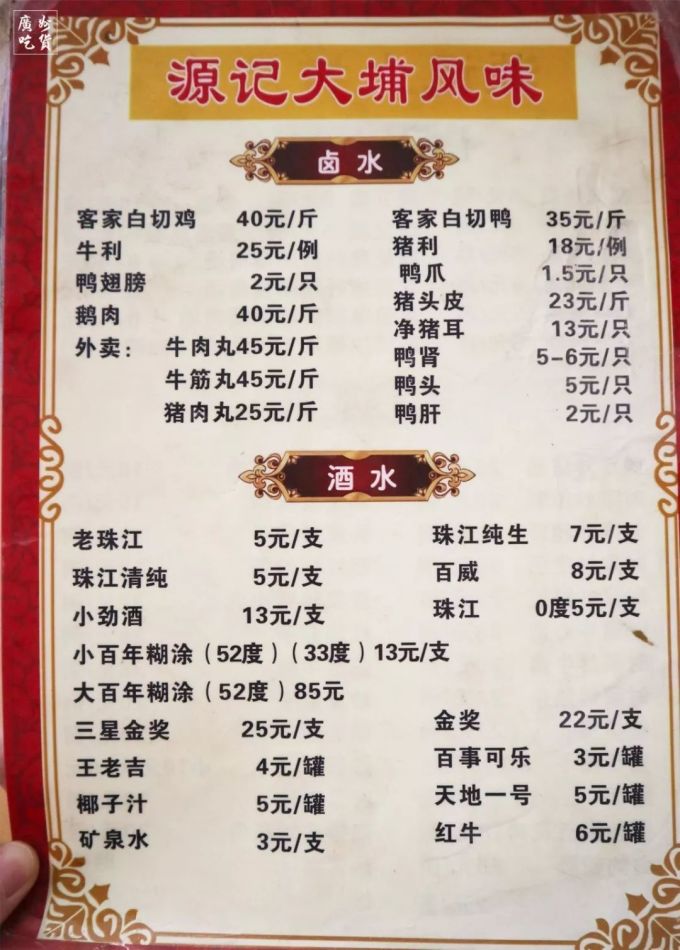 廣好
吃貨
源记大埔风味
卤水
客家白切鸡 40元/斤 客家白切鸭 35元/斤
牛利 25元/例 猪利 18元/例
鸭翅膀 2元/只 鸭爪 1.5元/只
鹅肉 40元/斤 猪头皮 23元/斤
外卖：牛肉丸45元/斤 净猪耳 13元/只
牛筋丸45元/斤 鸭肾 5-6元/只
猪肉丸25元/斤 鸭头 5元/只
鸭肝 2元/只
酒水
老珠江 5元/支 珠江纯生 7元/支
珠江清纯 5元/支 百威 8元/支
小劲酒 13元/支 珠江 0度5元/支
小百年糊涂（52度）（33度）13元/支
大百年糊涂（52度）85元
三星金奖 25元/支 金奖 22元/支
王老吉 4元/罐 百事可乐 3元/罐
椰子汁 5元/罐 天地一号 5元/罐
矿泉水 3元/支 红牛 6元/罐